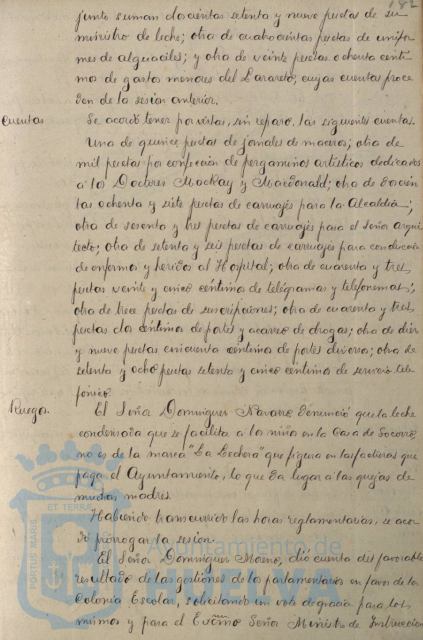 182
junto suman doscientas setenta y nueve pesetas de su
ministro de leche; otra de cuatrocientas pesetas de unifor
mes de alguaciles; y otra de veinte pesetas ochenta cénti
mos de gastos menores del Lazareto; cuyas cuentas proce
den de la sesion anterior.
Cuentas
Se acordó tener por vistas, sin reparo, las siguientes cuentas.
Una de quince pesetas de jornales de maceros; otra de
mil pesetas por confección de pergaminos artísticos dedicados
a los Doctores Mackay y Macdonald; otra de doscien
tas ochenta y siete pesetas de carruajes para la Alcaldia;
otra de sesenta y tres pesetas de carruajes para el Señor arqui
tecto; otra de setenta y seis pesetas de carruajes para conducción
de enfermos y heridos al Hospital; otra de cuarenta y tres
pesetas veinte y cinco centimos de telégramas y telefonemas;
otra de trece pesetas de suscripciones; otra de cuarenta y tres
pesetas dos centimos de portes y acarreo de drogas; otra de diez
y nueve pesetas cincuenta centimos de portes diversos; otra de
setenta y ocho pesetas setenta y cinco centimos de servicio tele
fónico.
Ruegos.
El Señor Dominguez Navarro denunció que la leche
condensada que se facilita a los niños en la Casa de Socorro,
no es de la marca "La Lechera" que figura en las facturas que
paga el Ayuntamiento, lo que da lugar a las quejas de
muchas madres.
Habiendo transcurrido las horas reglamentarias, se acor
dó prorrogar la sesión.
El Señor Dominguez Moreno, dió cuenta del favorable
resultado de las gestiones de los parlamentarios en favor de la
Colonia Escolar, solicitando un voto de gracias para los
mismos y para el Excmo Señor Ministro de Instruccion
PORTUS MARIS ET TERRAE
Ayuntamiento de
HUELVA